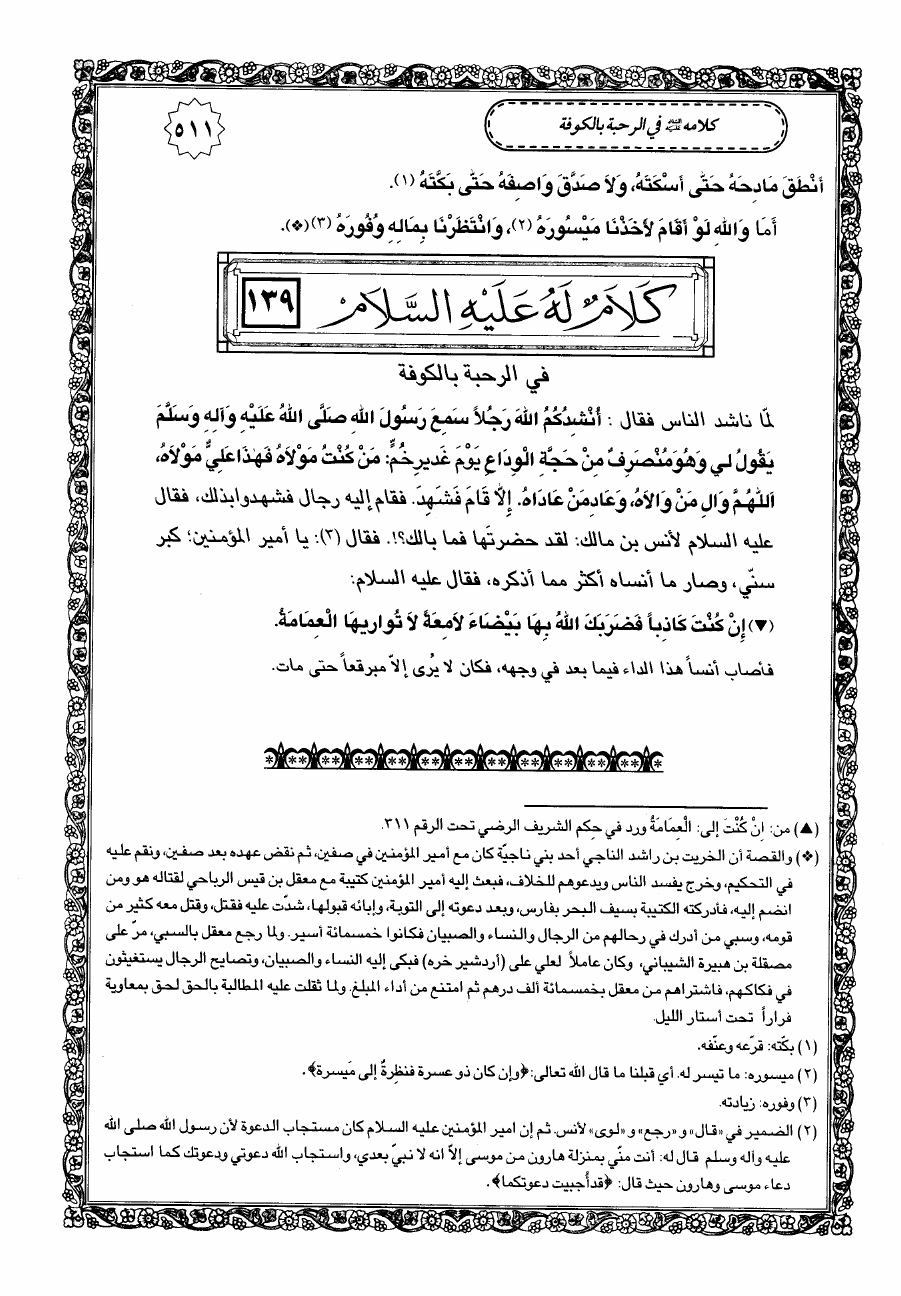 كلامه عليه السلام في الرحبة بالكوفة
٥١١
أَنْطَقَ مَادِحَهُ حَتَّى أَسْكَتَهُ، وَلاَ صَدَّقَ وَاصِفَهُ حَتَّى بَكَّتَهُ (١).
أَمَا وَاللهِ لَوْ أَقَامَ لأَخَذْنَا مَيْسُورَهُ (٢)، وَانْتَظَرْنَا بِمَالِهِ وُفُورَهُ (٣)(❖).
كَلَامٌ لَهُ عَلَيْهِ السَّلَامُ
١٣٩
في الرحبة بالكوفة
لمّا ناشد الناس فقال : أَنْشِدُكُمُ اللهَ رَجُلاً سَمِعَ رَسُولَ اللهِ صَلَّى اللهُ عَلَيْهِ وَآلِهِ وَسَلَّمَ
يَقُولُ لي وَهُوَ مُنْصَرِفٌ مِنْ حَجَّةِ الْوِدَاعِ يَوْمَ غَدِيرِ خُمٍّ: مَنْ كُنْتُ مَوْلاَهُ فَهٰذَا عَلِيٌّ مَوْلاَهُ،
اَللّٰهُمَّ وَالِ مَنْ وَالاَهُ، وَعَادِ مَنْ عَادَاهُ. إِلاَّ قَامَ فَشَهِدَ. فقام إليه رجال فشهدوا بذلك، فقال
عليه السلام لأنس بن مالك: لقد حضرتَها فما بالك؟!. فقال (٢): يا أمير المؤمنين؛ كبر
سنّي، وصار ما أنساه أكثر مما أذكره، فقال عليه السلام:
(▼) إِنْ كُنْتَ كَاذِباً فَضَرَبَكَ اللهُ بِهَا بَيْضَاءَ لاَمِعَةً لاَ تُوارِيهَا الْعِمَامَةُ.
فأصاب أنساً هذا الداء فيما بعد في وجهه، فكان لا يُرى إلاّ مبرقعاً حتى مات.
(▲) من: اِنْ كُنْتَ إلى: الْعِمَامَةُ ورد في حِكم الشريف الرضي تحت الرقم ٣١١.
(❖) والقصة أن الخريت بن راشد الناجي أحد بني ناجيّة كان مع أمير المؤمنين في صفين، ثم نقض عهده بعد صفين، ونقم عليه
في التحكيم، وخرج يفسد الناس ويدعوهم للخلاف، فبعث إليه أمير المؤمنين كتيبة مع معقل بن قيس الرباحي لقتاله هو ومن
انضم إليه، فأدركته الكتيبة بسيف البحر بفارس، وبعد دعوته إلى التوبة، وإبائه قبولها، شدّت عليه فقتل، وقتل معه كثير من
قومه، وسبي من أدرك في رحالهم من الرجال والنساء والصبيان فكانوا خمسمائة أسير. ولما رجع معقل بالسبي، مرّ على
مصقلة بن هبيرة الشيباني، وكان عاملاً لعلي على (أردشير خره) فبكى إليه النساء والصبيان، وتصايح الرجال يستغيثون
في فكاكهم، فاشتراهم من معقل بخمسمائة ألف درهم ثم امتنع من أداء المبلغ. ولما ثقلت عليه المطالبة بالحق لحق بمعاوية
فراراً تحت أستار الليل.
(١) بكّته: قرّعه وعنّفه.
(٢) ميسوره: ما تيسر له. أي قبلنا ما قال الله تعالى: ﴿وإن كان ذو عسرة فنظِرةٌ إلى مَيسرة﴾.
(٣) وفوره: زيادته.
(٢) الضمير في «قال» و «رجع» و «لوى» لأنس. ثم إن امير المؤمنين عليه السلام كان مستجاب الدعوة لأن رسول الله صلى الله
عليه وآله وسلم قال له: أنت منّي بمنزلة هارون من موسى إلاّ انه لا نبيّ بعدي، واستجاب الله دعوتي ودعوتك كما استجاب
دعاء موسى وهارون حيث قال: ﴿قد أُجيبت دعوتكما﴾.